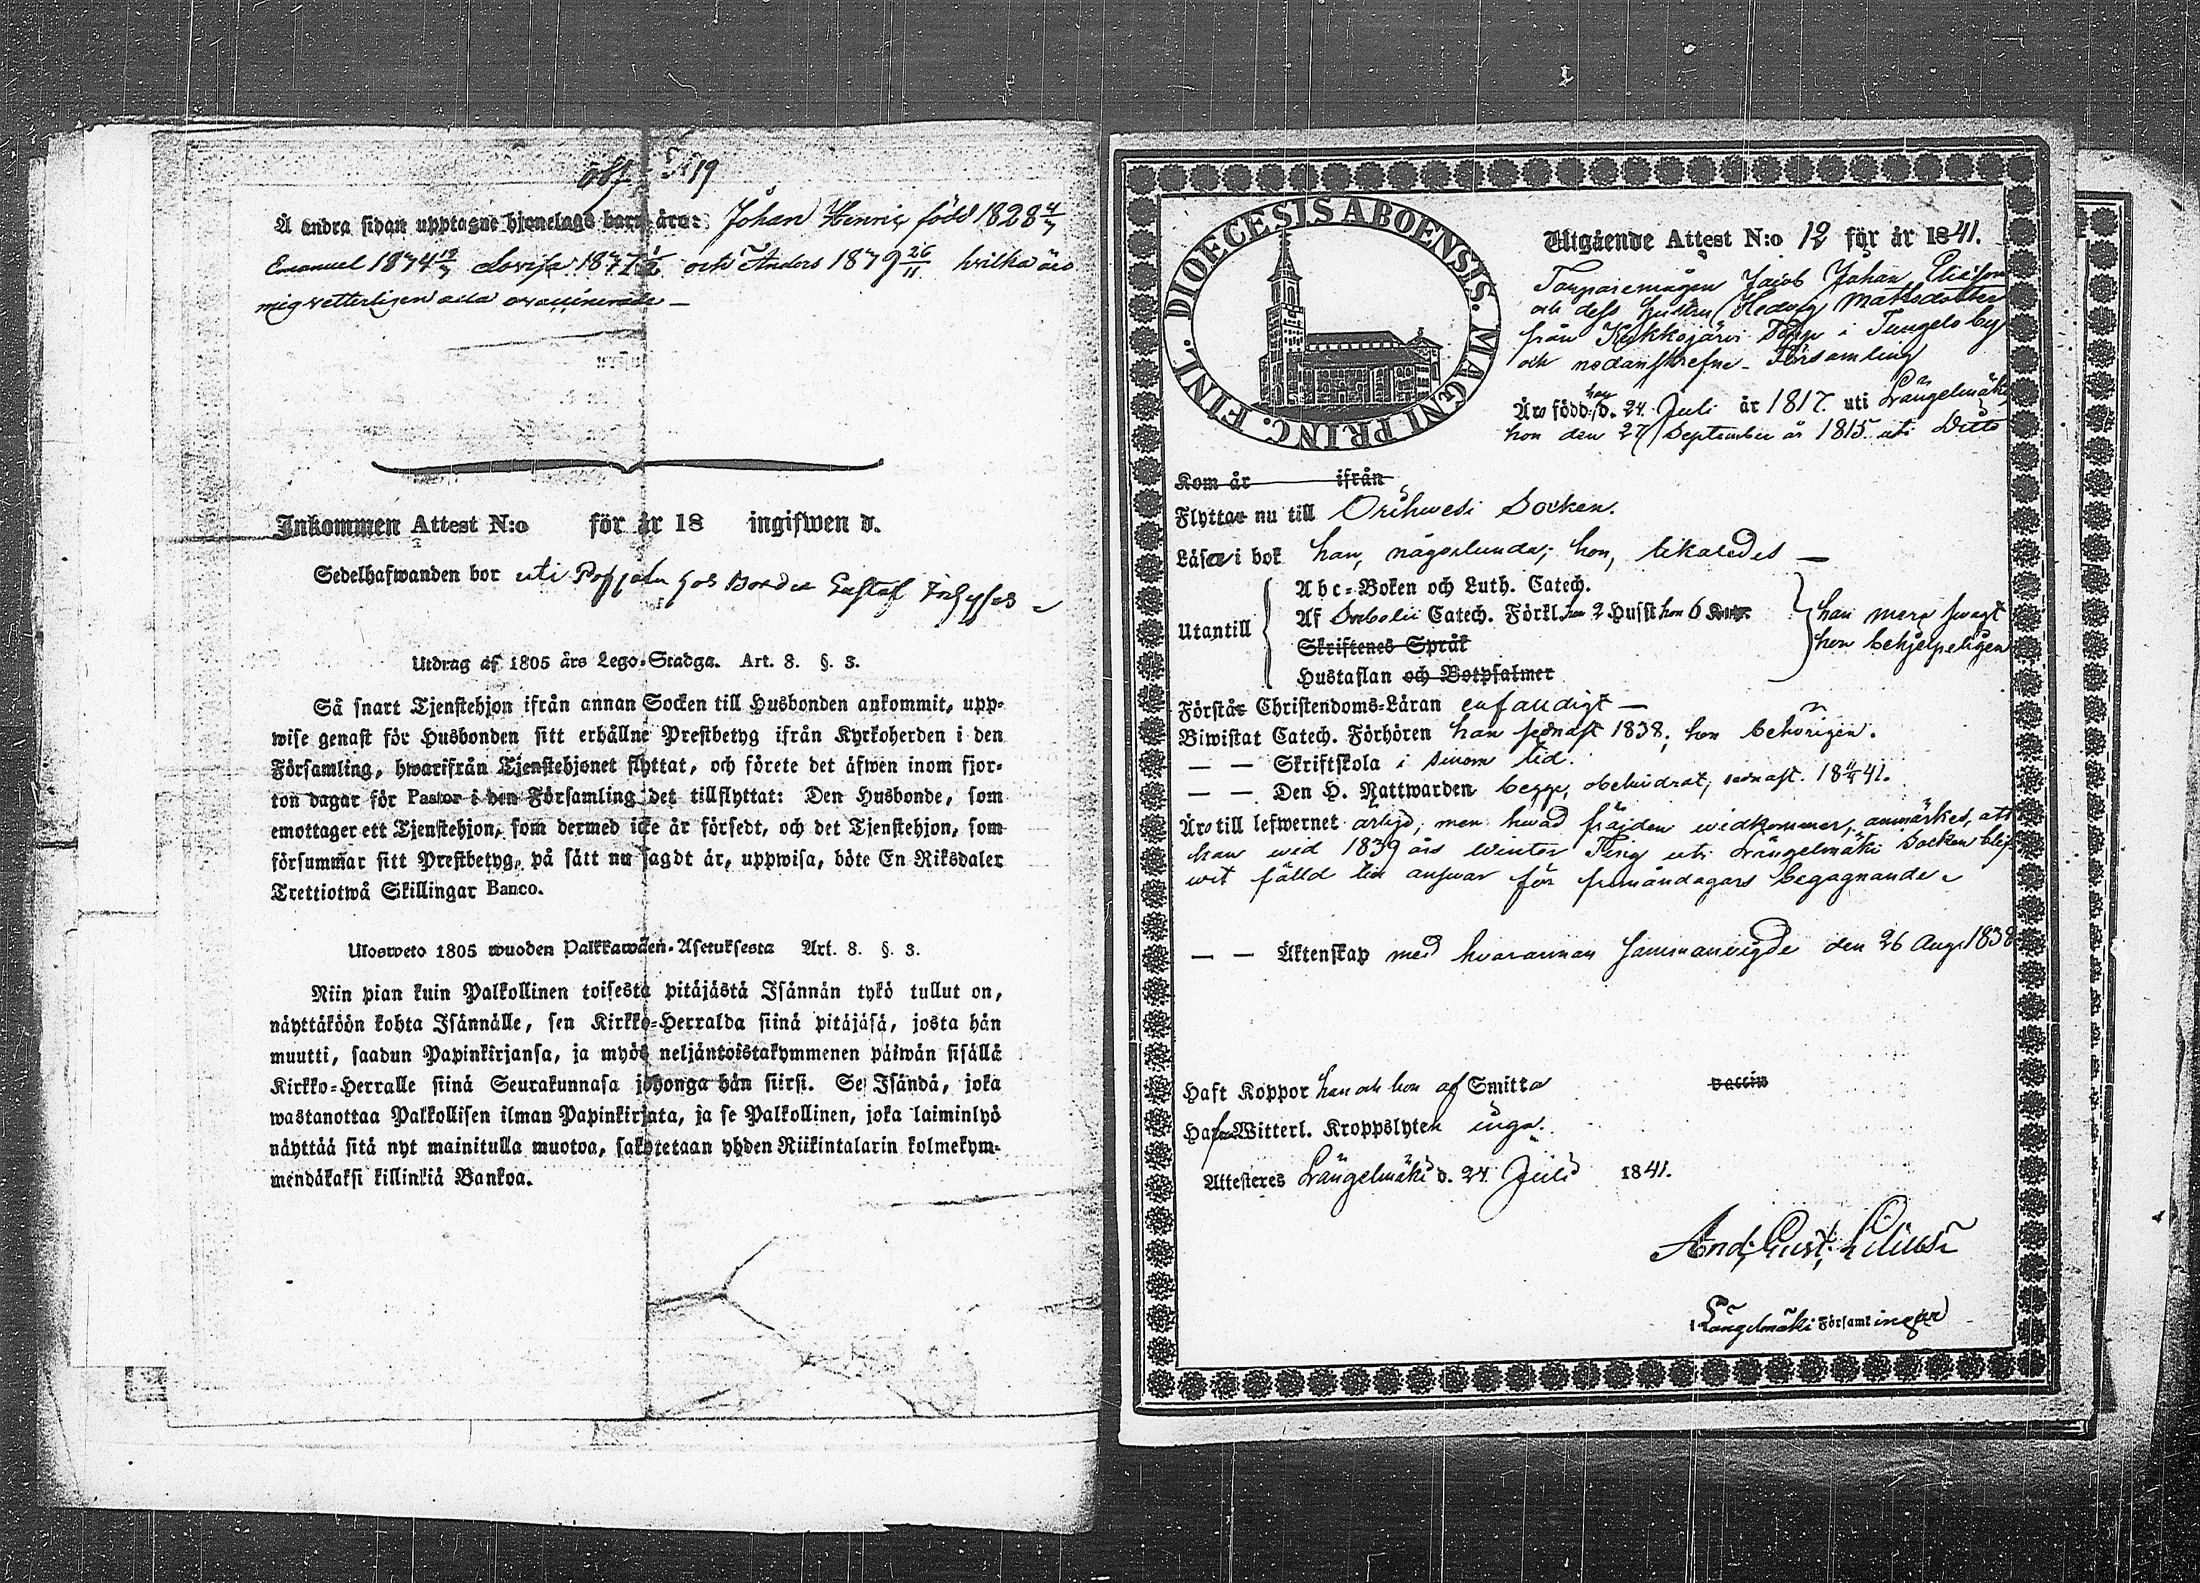 N:o 19
A andra sidan upptagne hjonelags barn äro: Johan Henric född 1828 4/7
Emanuel 1834 12/7 Lovisa 1837 1/2 och Anders 1839 26/11 hvilka äro
mig vetterligen alla vaccinerade —
Inkommen Attest N:o för år 18 ingifwen d.
Sedelhafwanden bor uti Pohjola hos Bonden Gustaf
Utdrag af 1805 års Lego-Stadga. Art. 8. §. 3.
Så snart Tjenstehjon ifrån annan Socken till Husbonden ankommit, upp-
wise genast för Husbonden sitt erhållne Prestbetyg ifrån Kyrkoherden i den
Församling, hwarifrån Tjenstehjonet flyttat, och förete det äfwen inom fjor-
ton dagar för Pastor i den Församling det tillflyttat: Den Husbonde, som
emottager ett Tjenstehjon, som dermed icke är försedt, och det Tjenstehjon, som
försummar sitt Prestbetyg, på sätt nu sagdt är, uppwisa, böte En Riksdaler
Trettiotwå Skillingar Banco.
Ulosweto 1805 wuoden Palkkawäen-Asetuksesta Art. 8. §. 3.
Niin pian kuin Palkollinen toisesta pitäjästä Isännän tykö tullut on,
näyttäköön kohta Isännälle, sen Kirkko-Herralda siinä pitäjäsä, josta hän
muutti, saadun Papinkirjansa, ja myös neljäntoistakymmenen päiwän sisällä
Kirkko-Herralle siinä Seurakunnasa johonga hän siirsi. Se Isändä, joka
wastanottaa Palkollisen ilman Papinkirjata, ja se Palkollinen, joka laiminlyö
näyttää sitä nyt mainitulla muotoa, sakotetaan yhden Riikintalarin kolmekym-
mendäkaksi killinkiä Bankoa.
DIOECESIS ABOENSIS. MAGNI PRINC. FINL.
Utgående Attest N:o 12 för år 1841.
Torparemågen Jacob Johan Eliasson
och dess hustru Hedvig Mattsdotter
från Kukkojärvi Torp i Tungelo by
och nedanskrefne Församling
Äro född: han d. 24 Juli år 1817. uti Längelmäki,
hon den 27 September år 1815. uti Ditto
Kom år ifrån
Flyttar nu till Orihvesi Socken.
Läsa i bok han, någorlunda; hon, likaledes —
Utantill
Abc-Boken och Luth. Catech.
Af Svebelii Catech. Förkl. han 2 Hufst hon 6
Skriftenes Språk
Hustaflan och Botpsalmer
han mera svagt
hon behjelpeligen
Förstår Christendoms-Läran enfaldigt —
Biwistat Catech. Förhören han sednast 1838; hon behörigen.
— — Skriftskola i sinom tid.
— — Den H. Nattwarden begge, obehindrat, sednast. 18 11/4 41.
Äro till lefwernet ärlige, men hvad frägden widkommer, anmärkes, att
han wid 1839 års Winter Ting uti Längelmäki Socken blif-
wit fälld till answar för frimåndagars begagnande.
— — Äktenskap med hvarannan sammanvigde den 26 Aug. 1838
Haft Koppor han och hon af Smitta vaccin
Hafwa Witterl. Kroppslyten inga.
Attesteres Längelmäki d. 24 Juli 1841.
And. Gust. Lilius
i Längelmäki Församlingar